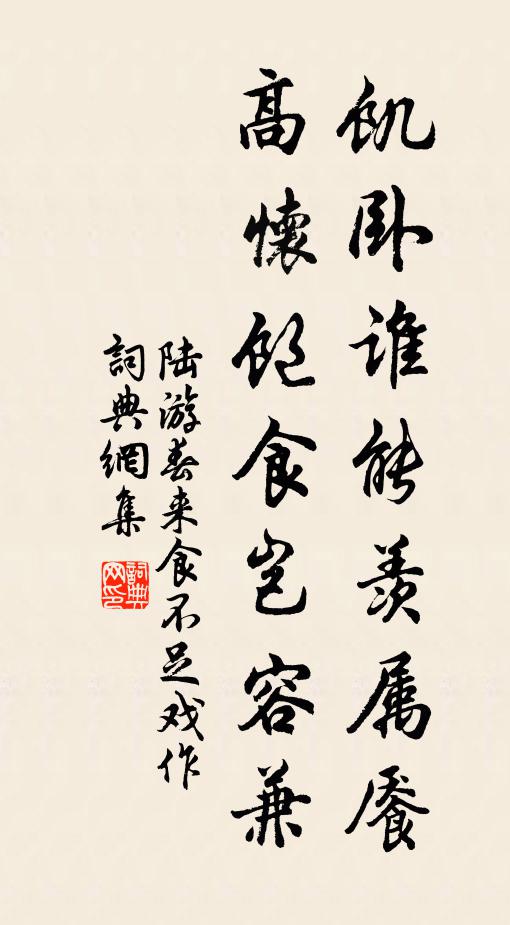 飢卧谁能羨属饜
高懷飽食岂容兼
陆游春来食不足戏作
詞典網集
詞典
网印